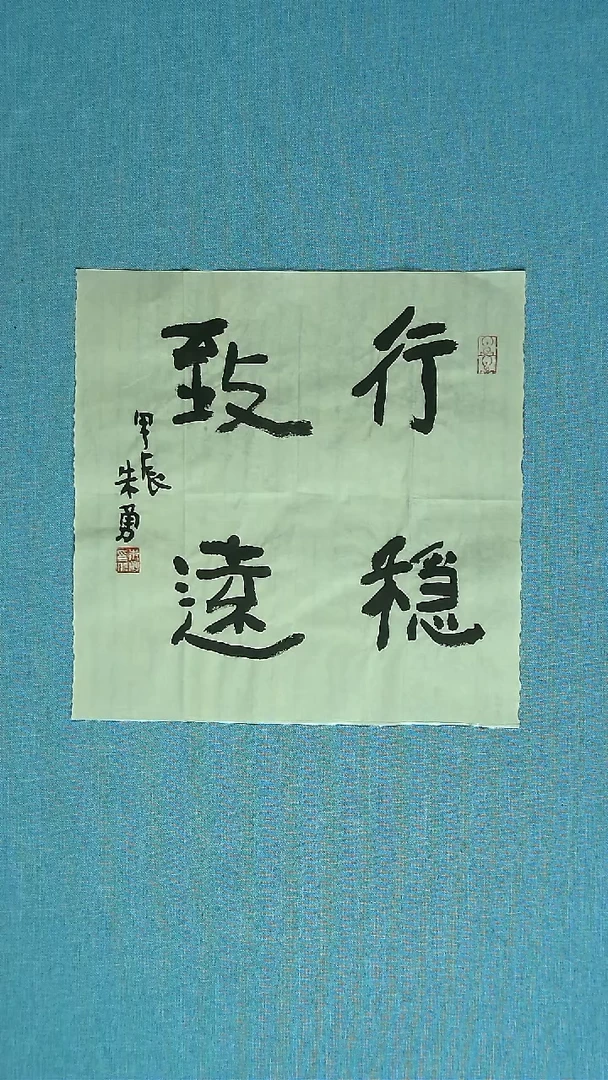 行穩
致遠
甲辰
朱勇